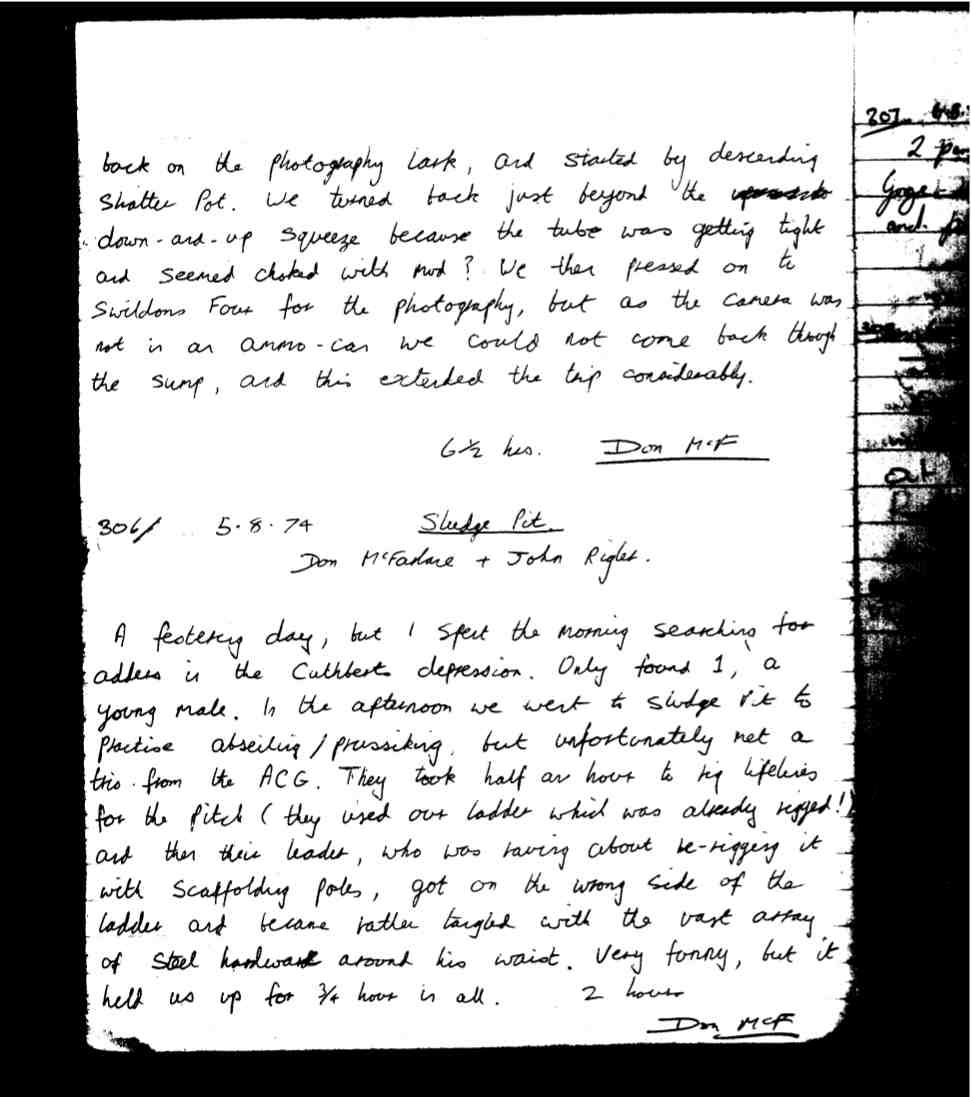 back on the photography lark, and started by descending
Shatter Pot. We turned back just beyond the
down-and-up squeeze because the tube was getting tight
and seemed choked with mud? We then pressed on to
Swildons Four for the photography, but as the camera was
not in an ammo-can we could not come back through
the sump, and this extended the trip considerably.
6½ hrs. Don McF
306/ 5.8.74 Sludge Pit.
Don McFarlane + John Rigler.
A festering day, but I spent the morning searching for
adders in the Cuthberts depression. Only found 1, a
young male. In the afternoon we went to Sludge Pit to
practise abseiling/prussiking, but unfortunately met a
trio from the ACG. They took half an hour to rig lifelines
for the pitch (they used our ladder which was already rigged!)
and then their leader, who was raving about re-rigging it
with scaffolding poles, got on the wrong side of the
ladder and became rather tangled with the vast array
of steel hardware around his waist. Very funny, but it
held us up for ¾ hour in all. 2 hours
Don McF
307
2
and